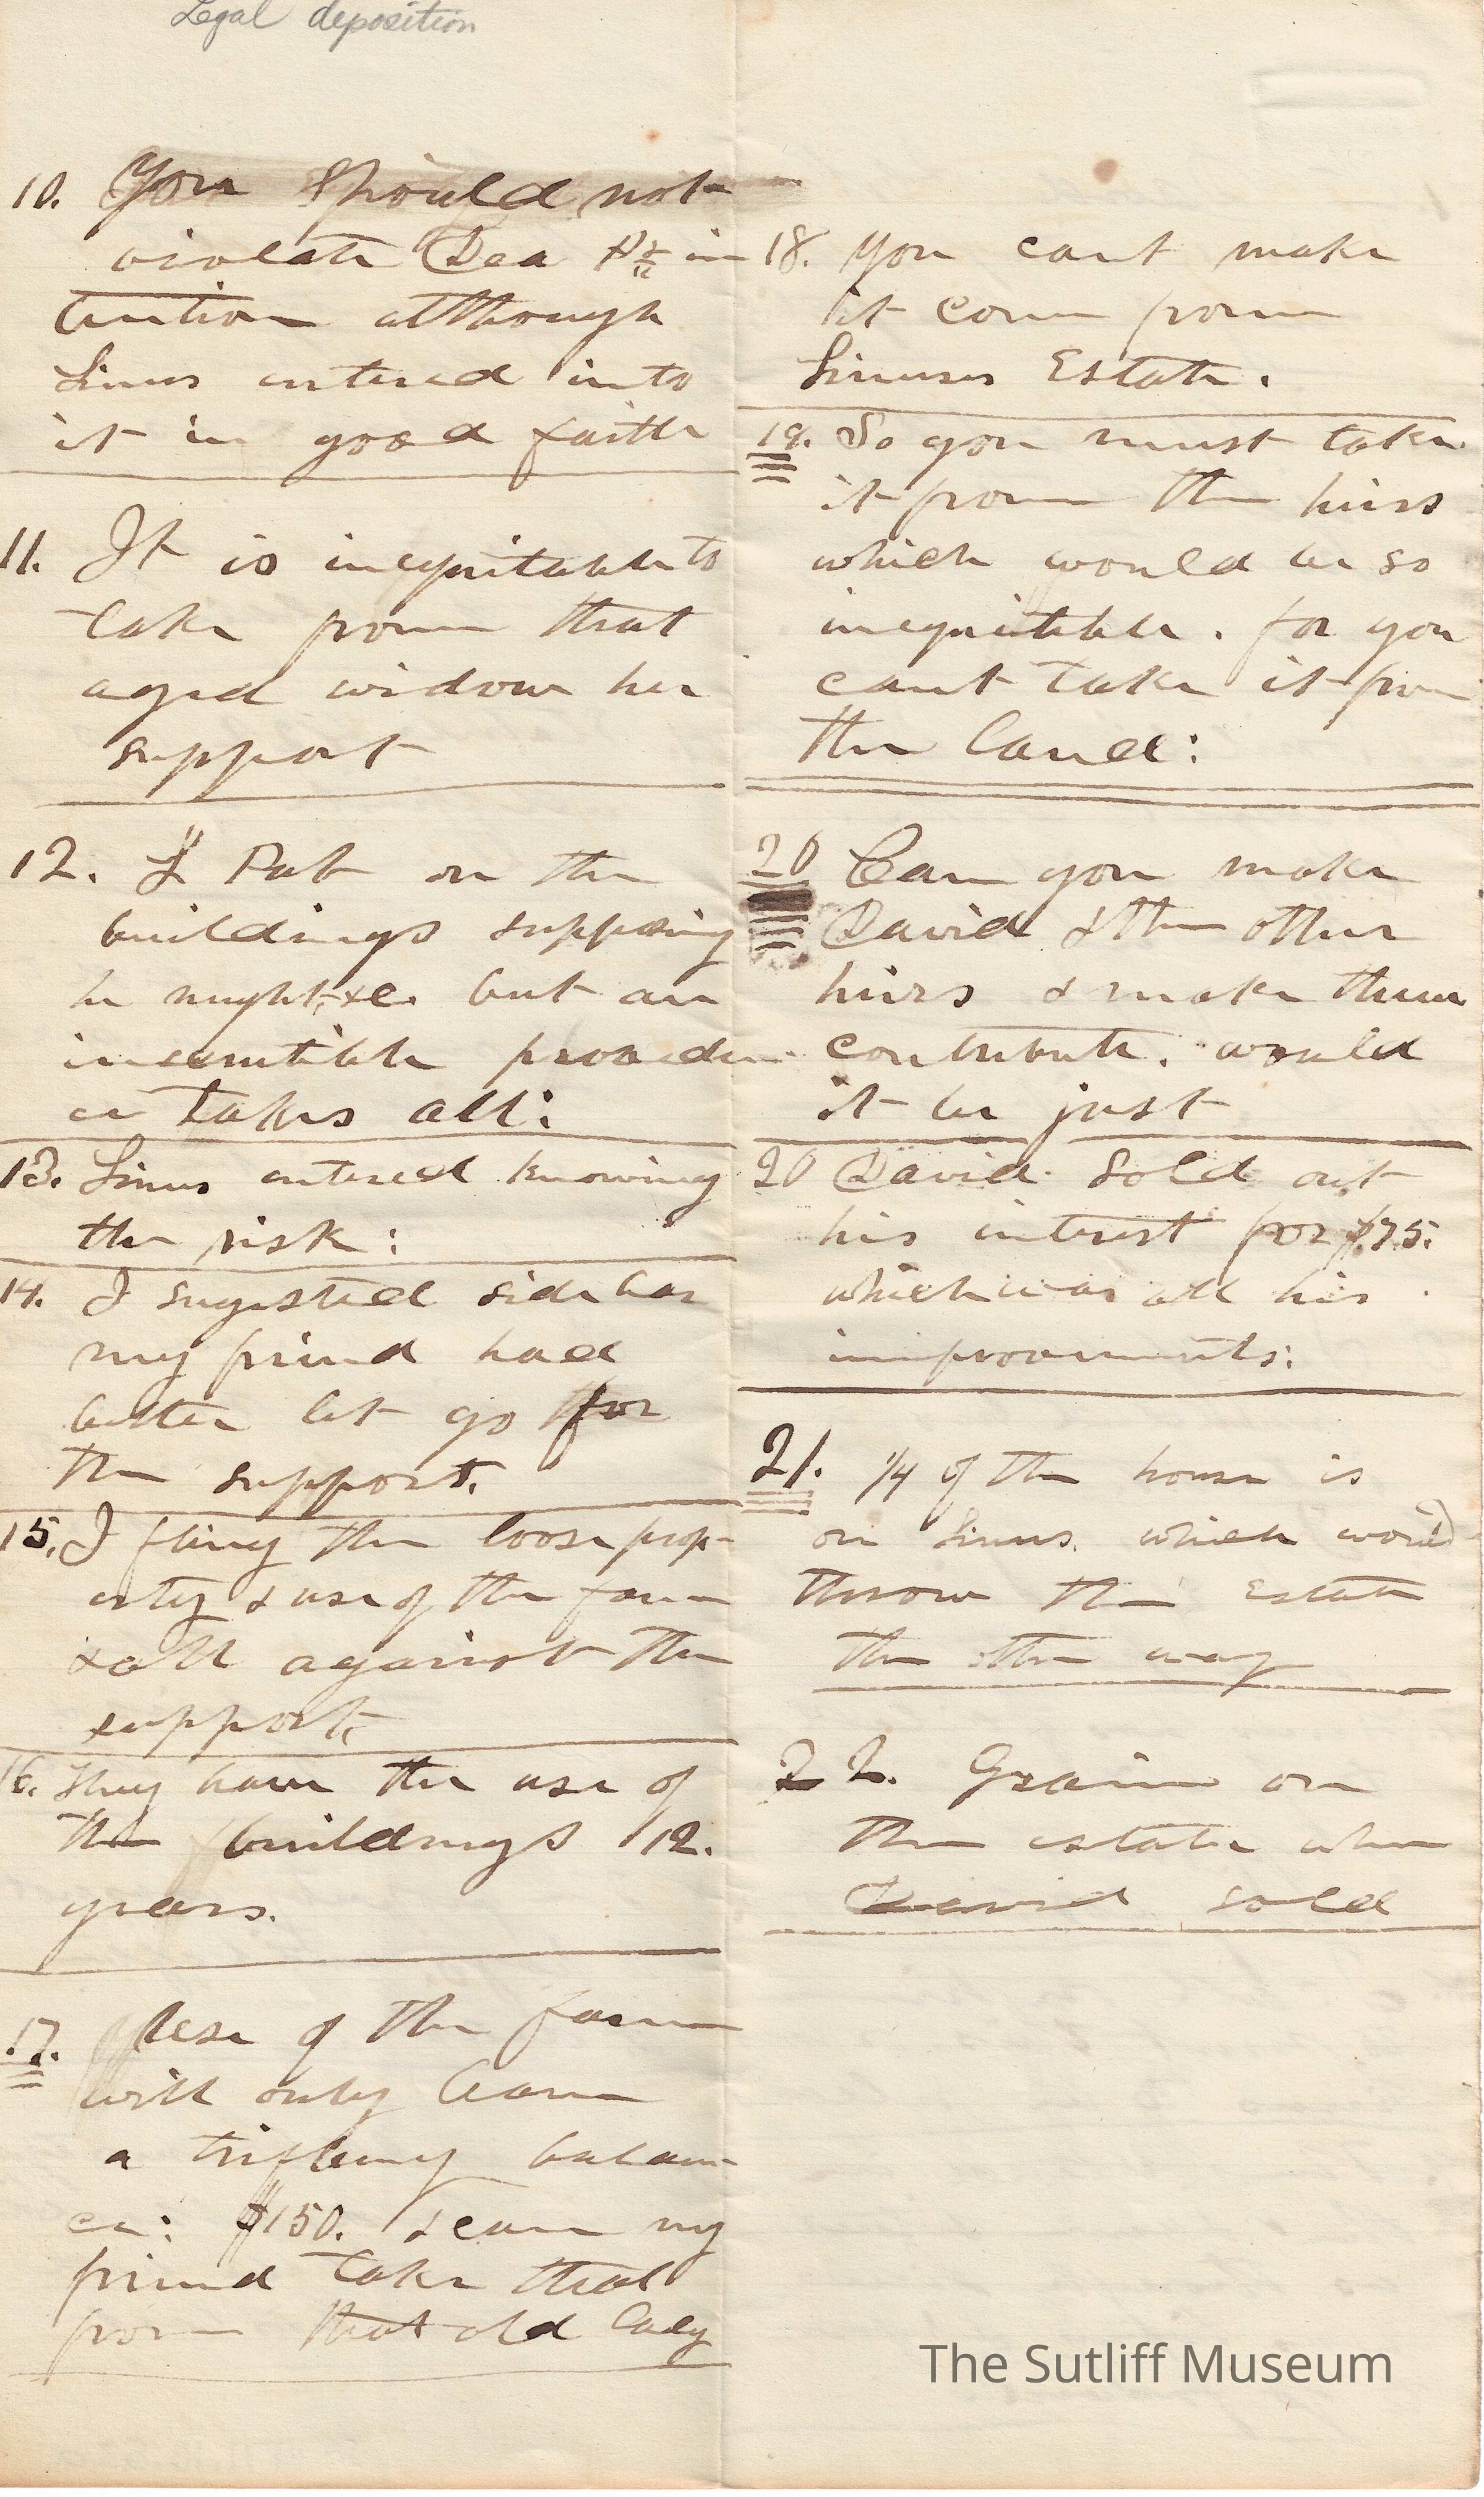 Legal deposition
10. You should not
violate Dea in
tention although
Linus entered into
it in good faith
11. It is inequitable to
take from that
aged widow her
support
12. L Pat on the
buildings supposing
he might &c. but an
inscrutible providen
ce takes all:
13. Linus entered knowing
the risk:
14. I sugested side bar
my friend had
better let go for
the support.
15. I fling the loose prop-
erty & use of the farm
& all against the
support.
16. They have the use of
the buildings 12.
years.
17. Use of the farm
will only leave
a trifleing balan-
ce: $150. & can my
friend take that
from that old lady
18. You cant make
it come from
Linuses Estate.
19. So you must take
it from the heirs
which would be so
inequitable. for you
cant take it from
the land:
20 Can you make
David & the other
heirs & make them
contribute. would
it be just
20 David sold out
his interest for $75.
which was all his
improvements:
21. 1/4 of the house is
on Linus. which would
throw the Estate
the other way
22. Grain on
the estate when
David sold
The Sutliff Museum